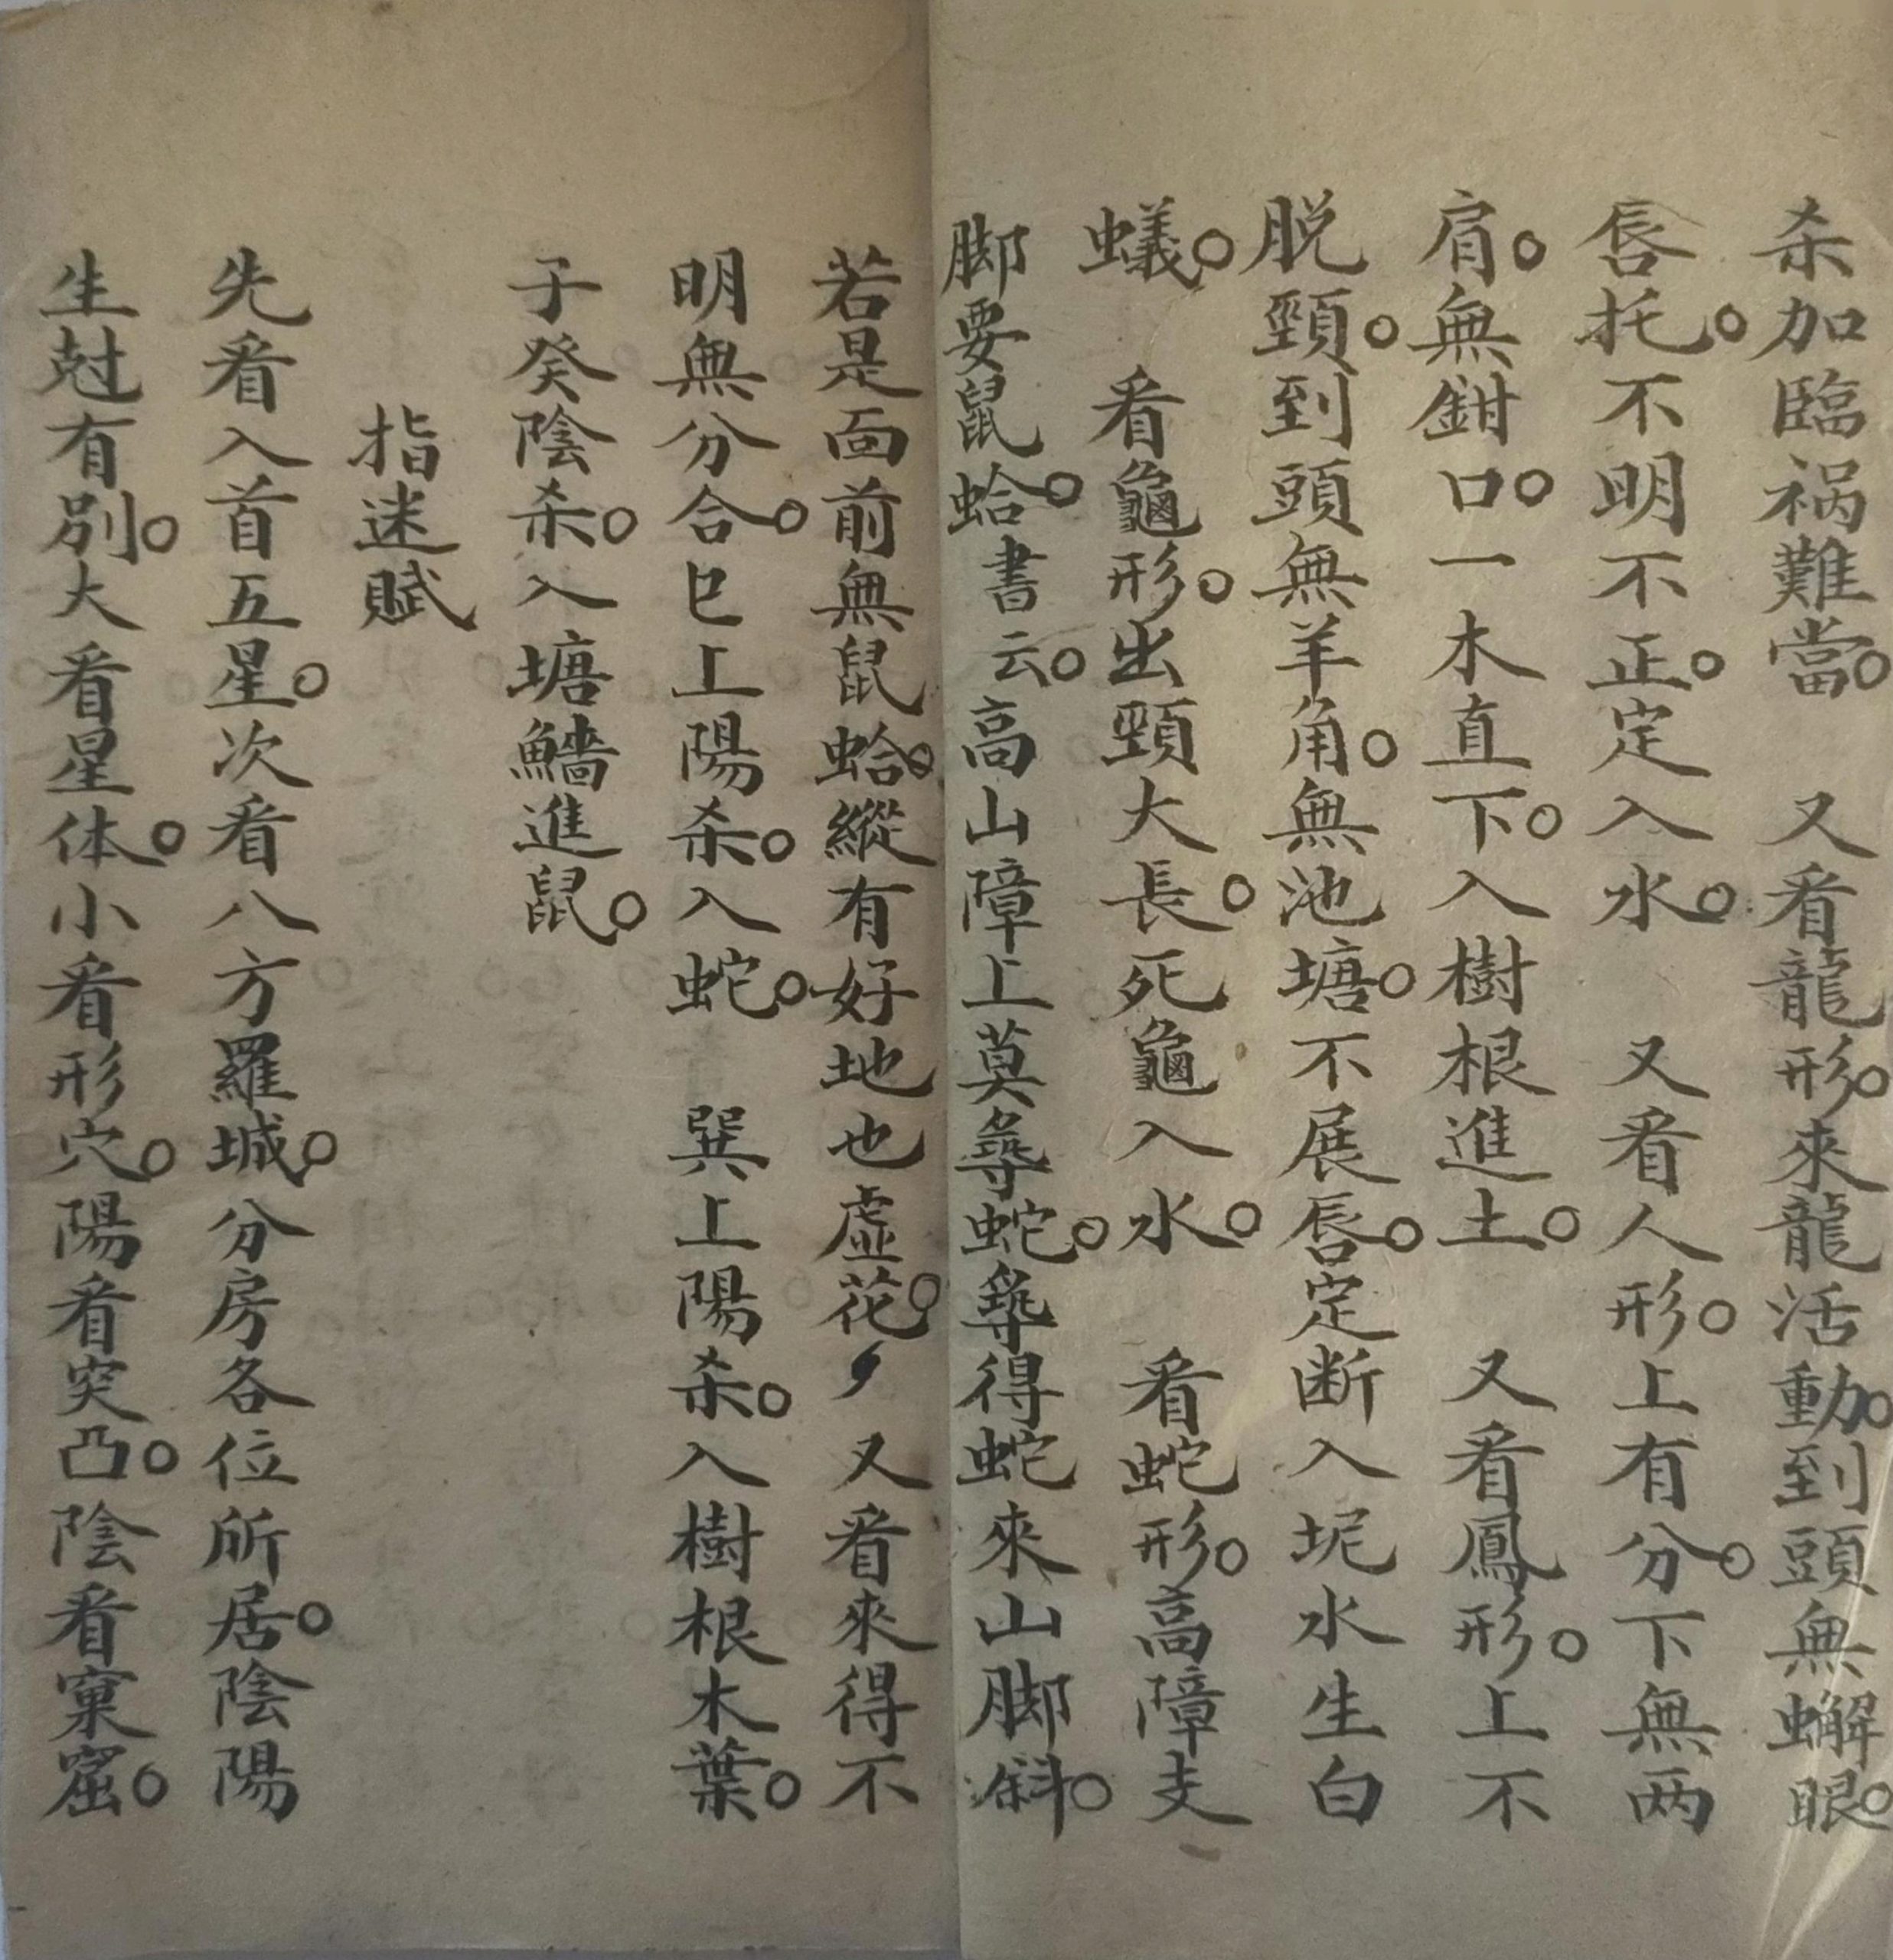 杀加臨祸難當。又看龍形。來龍活動。到頭無蠏眼。
唇托。不明不正。定入水。又看人形。上有分。下無两
肩。無鉗口。一木直下。入樹根進土。又看鳳形。上不
脱頸。到頭無羊角。無池塘。不展唇。定断入坭水生白
蟻。看龜形。出頸大長。死龜入水。看蛇形。高障支
脚要鼠蛤。書云。高山障上莫尋蛇。尋得蛇來山脚斜。
若是面前無鼠蛤。縱有好地也虛花。又看來得不
明無分合。巳上陽杀。入蛇。巽上陽杀。入樹根木葉。
子癸陰杀。入塘鱔進鼠。
指迷賦
先看入首五星。次看八方羅城。分房各位所居。陰陽
生尅有別。大看星体。小看形穴。陽看突凸。陰看窠窟。